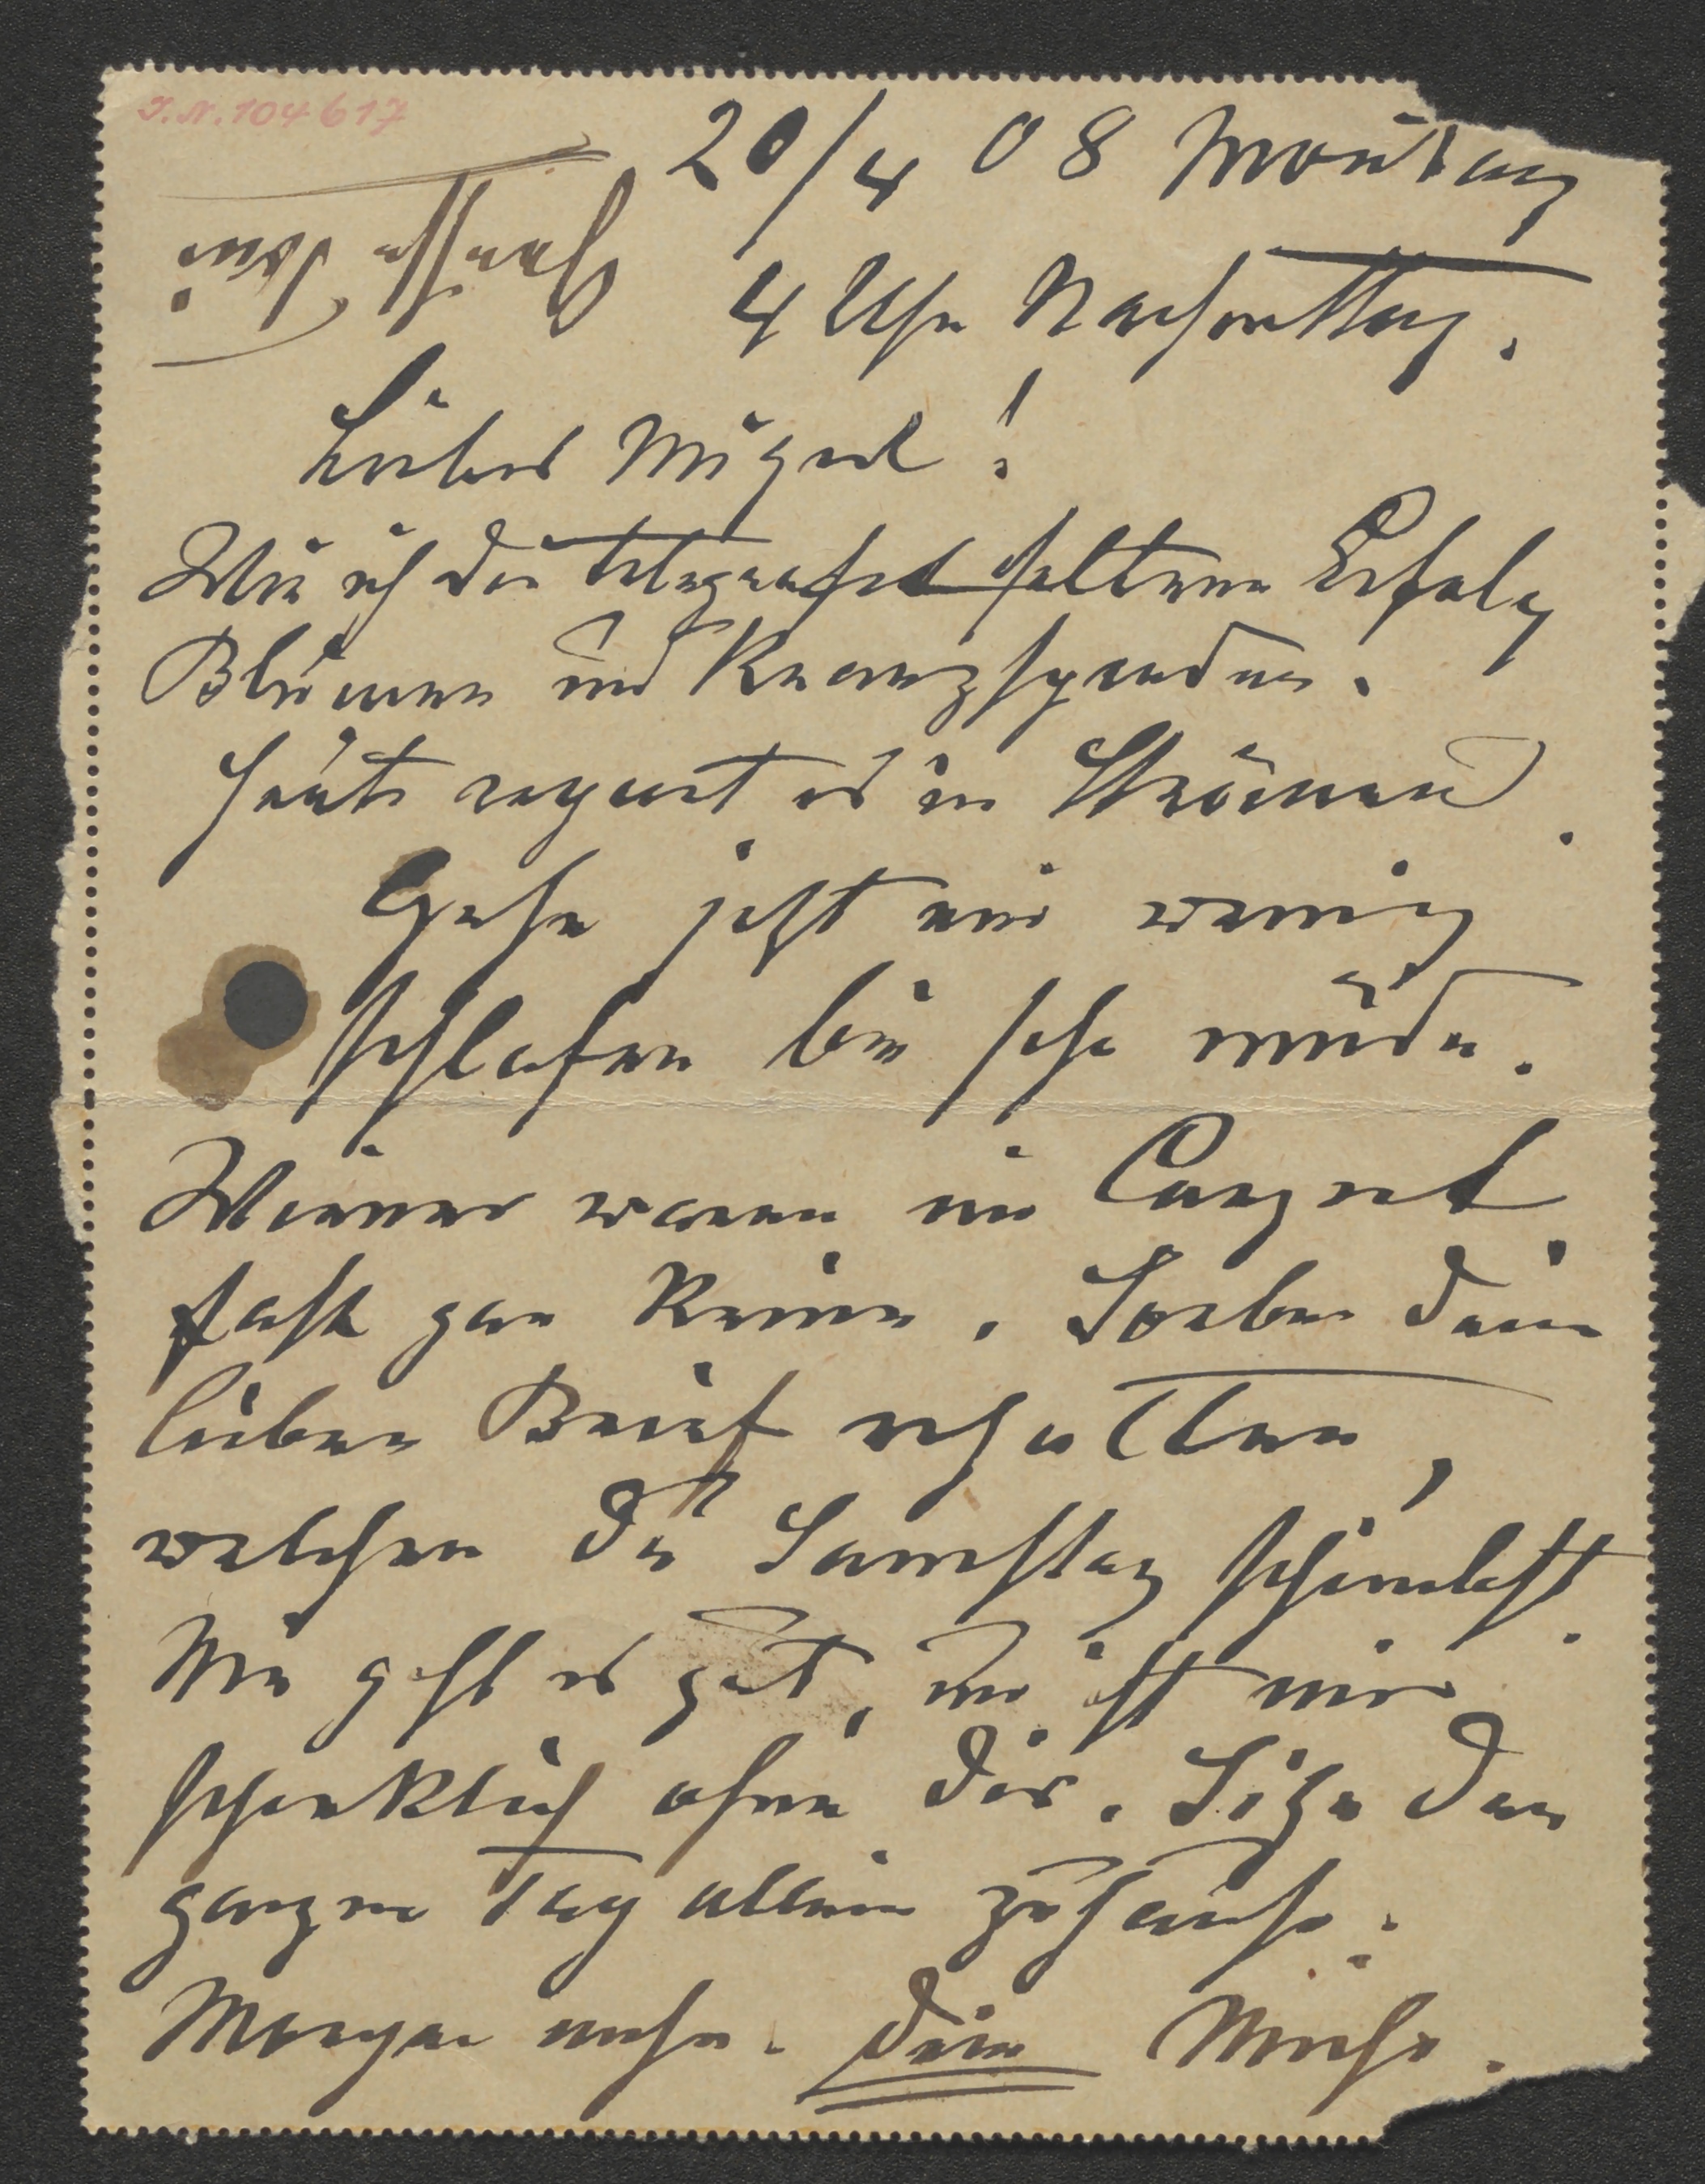 I.N. 104617
20/4 08 Montag
4 Uhr Nachmittag.
Grüsse Toni
Liebes Mizerl!
Wie ich dir telegrafirt seltener Erfolg
Blumen und Kranzspenden.
Heute regnet es in Strömen.
Gehe jetzt ein wenig
schlafen bin sehr müde.
Wiener waren im Conzert
fast gar keine. Soeben dein
lieben Brief erhalten,
welchen du Samstag schriebst.
Mir geht es gut, nur ist mir
schreklich ohne dir. Sitze den
ganzen Tag allein zuhause.
Morgen mehr. Dein